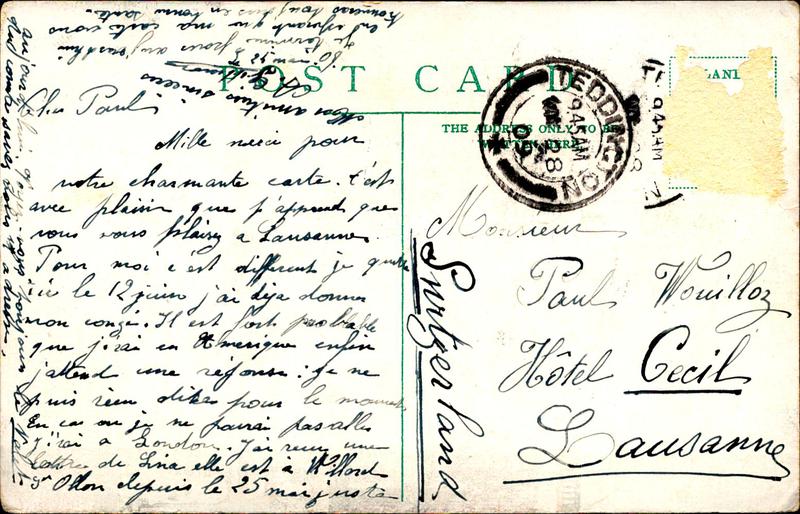 POST CARD
THE ADDRESS ONLY TO BE
WRITTEN HERE
TEDDINGTON
9.45 AM
28
09
Cher Paul
Mille merci pour
votre charmante carte. C'est
avec plaisir que j'apprend que
vous vous plaisez a Lausanne.
Pour moi c'est different je quitte
ici le 12 juin j'ai deja donner
mon congé. Il est fort probable
que j'irai en Amerique enfin
j'attend une réponse: je ne
puis rien dire pour le moment
En cas ou je ne pourai pas aller
J'irai a London. J'ai recu une
lettre de Lina elle est a Villard
s/ Ollon depuis le 25 mai juste
Je termine pour aujourd'hui
en esperant que ma carte vous
trouveras toujours en bonne santé.
Mes amitiés sincères
Monsieur
Paul Wouilloz
Hôtel Cecil
Lausanne
Switzerland